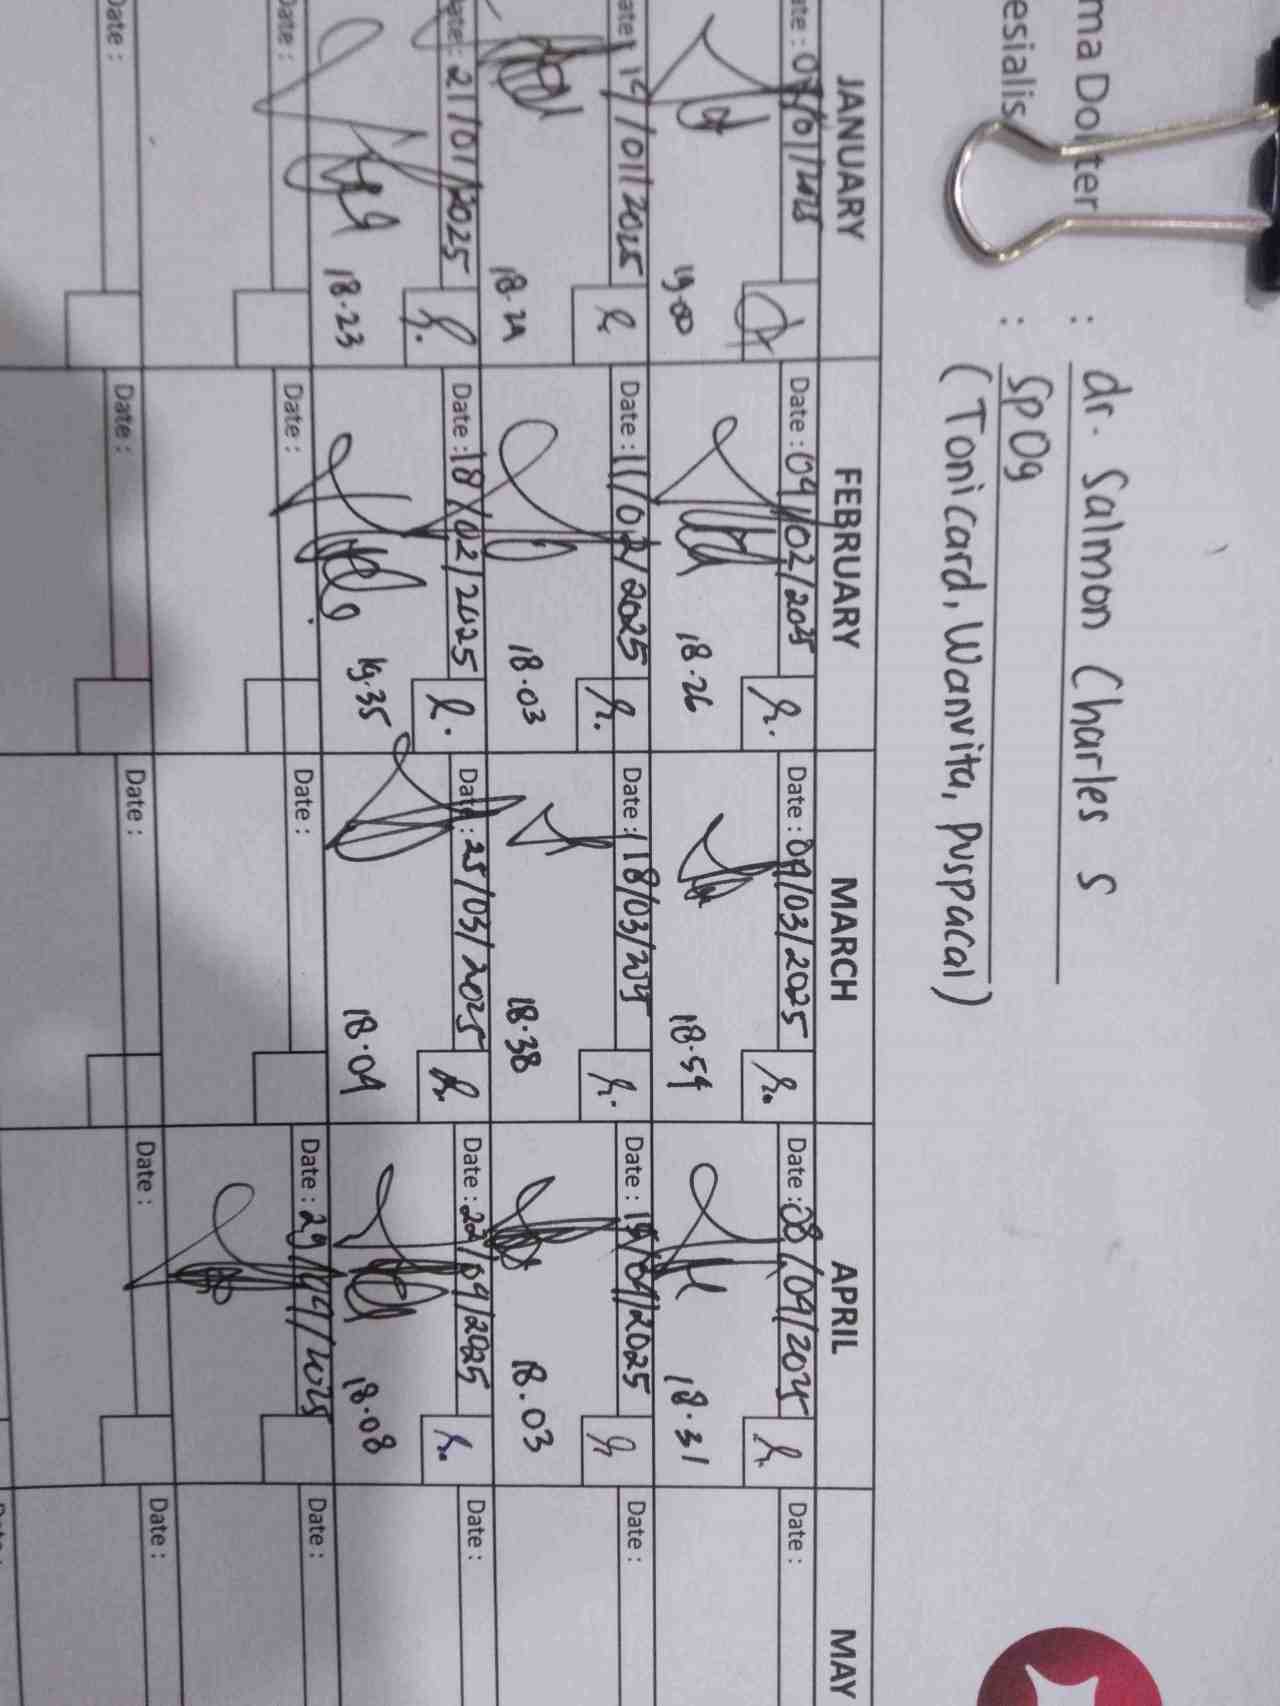 ma Dokter : dr. Salmon Charles S
esialis : SpOg
(Tonicard, Wanvita, Puspacal)
JANUARY FEBRUARY MARCH APRIL MAY
ate : 07/01/2025 Date : 04/02/2025 Date : 04/03/2025 Date : 08/04/2025 Date :
19.00 18.26 18.54 18.31
ate : 14/01/2025 Date : 11/02/2025 Date : 18/03/2025 Date : 15/04/2025 Date :
18.24 18.03 18.38 18.03
ate : 21/01/2025 Date : 18/02/2025 Date : 25/03/2025 Date : 22/04/2025 Date :
18.23 19.35 18.04 18.08
Date : Date : Date : Date : 29/04/2025 Date :
Date : Date : Date : Date : Date :